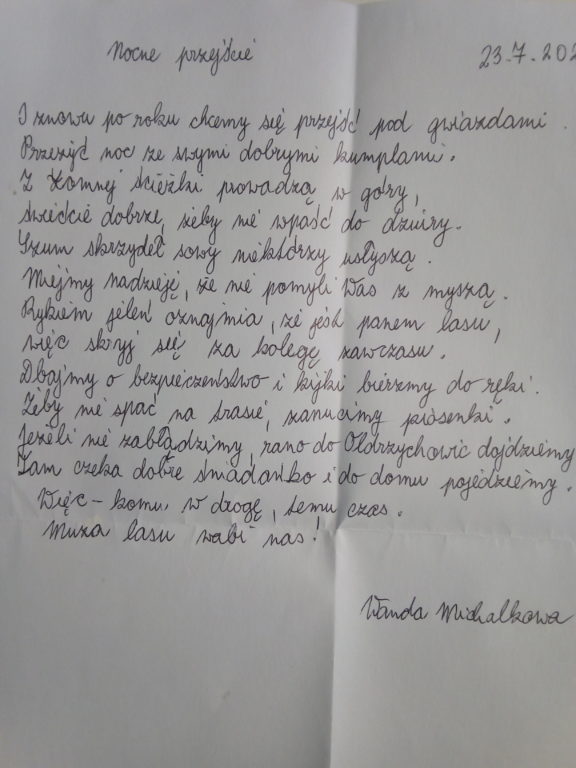 Nocne przejście 23.7.202
I znowu po roku chcemy się przejść pod gwiazdami.
Przeżyć noc ze swymi dobrymi kumplami.
Z Łomnej ścieżki prowadzą w góry,
świećcie dobrze, żeby nie wpaść do dziury.
Szum skrzydeł sowy niektórzy usłyszą.
Miejmy nadzieję, że nie pomyli Was z myszą.
Rykiem jeleń oznajmia, że jest panem lasu,
więc skryj się za kolegę zawczasu.
Dbajmy o bezpieczeństwo i kijki bierzmy do ręki.
Żeby nie spać na trasie, zanućimy piosenki.
Jeżeli nie zabłądzimy, rano do Oldrzychowic dojdziemy
Tam czeka dobre śniadańko i do domu pojedziemy.
Więc - komu, w drogę, temu czas.
Muza lasu wabi nas!
Wanda Michalkowa